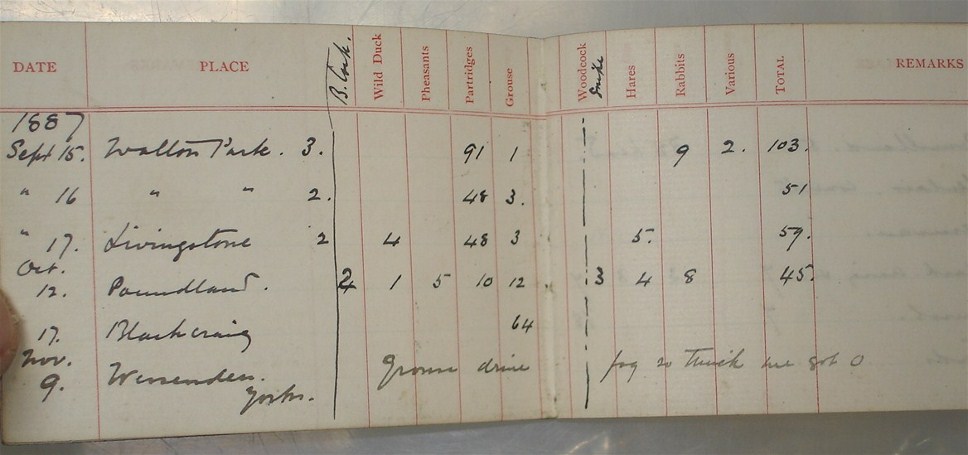 DATE PLACE B. Cock. Wild Duck Pheasants Partridges Grouse Woodcock Snipe Hares Rabbits Various TOTAL REMARKS
1887
Sept 15. Walton Park. 3. 91 1 9 2. 103.
" 16 " " 2. 48 3. 51
" 17. Livingstone 2 4 48 3 5. 59.
Oct.
12. Poundland. 2 1 5 10 12 3 4 8 45.
17. Blackcraig 64
Nov.
9. Wessenden. Grouse drive fog so thick we got 0
Yorks.